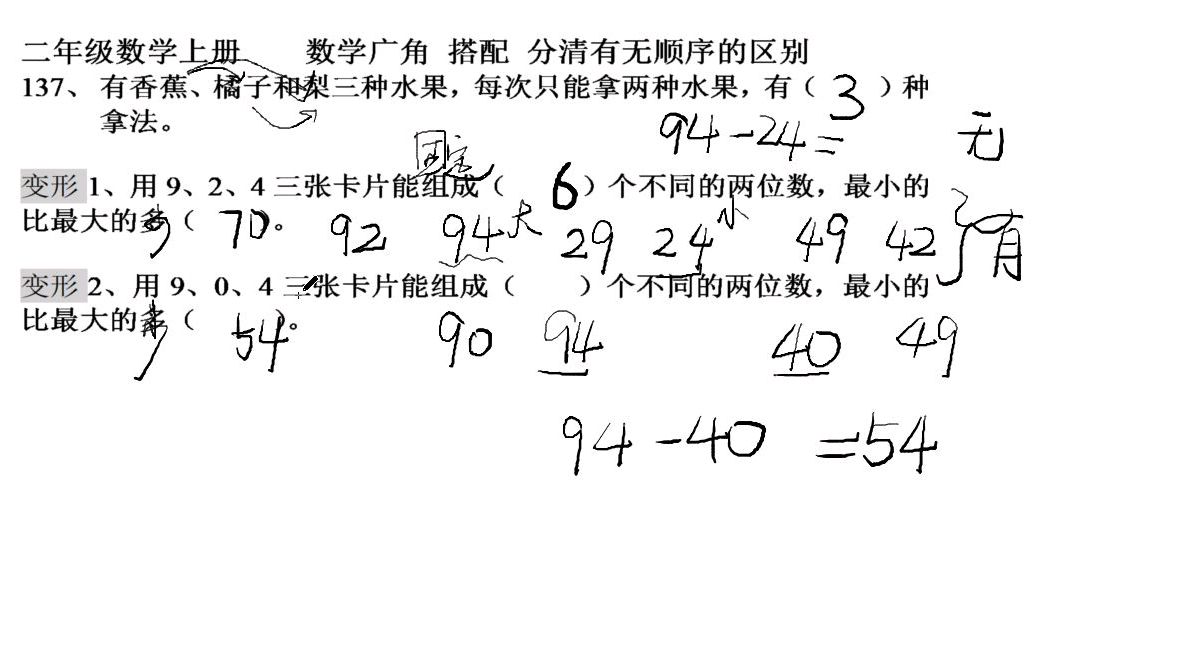 二年级数学上册 数学广角 搭配 分清有无顺序的区别
137、有香蕉、橘子和梨三种水果，每次只能拿两种水果，有（ 3 ）种
拿法。
94-24= 无
固定
变形 1、用 9、2、4 三张卡片能组成（ 6 ）个不同的两位数，最小的
比最大的少（ 70。 92 94大 29 24小 49 42 有
变形 2、用 9、0、4 三张卡片能组成（ ）个不同的两位数，最小的
比最大的少（ 54 ）。 90 94 40 49
94-40 =54